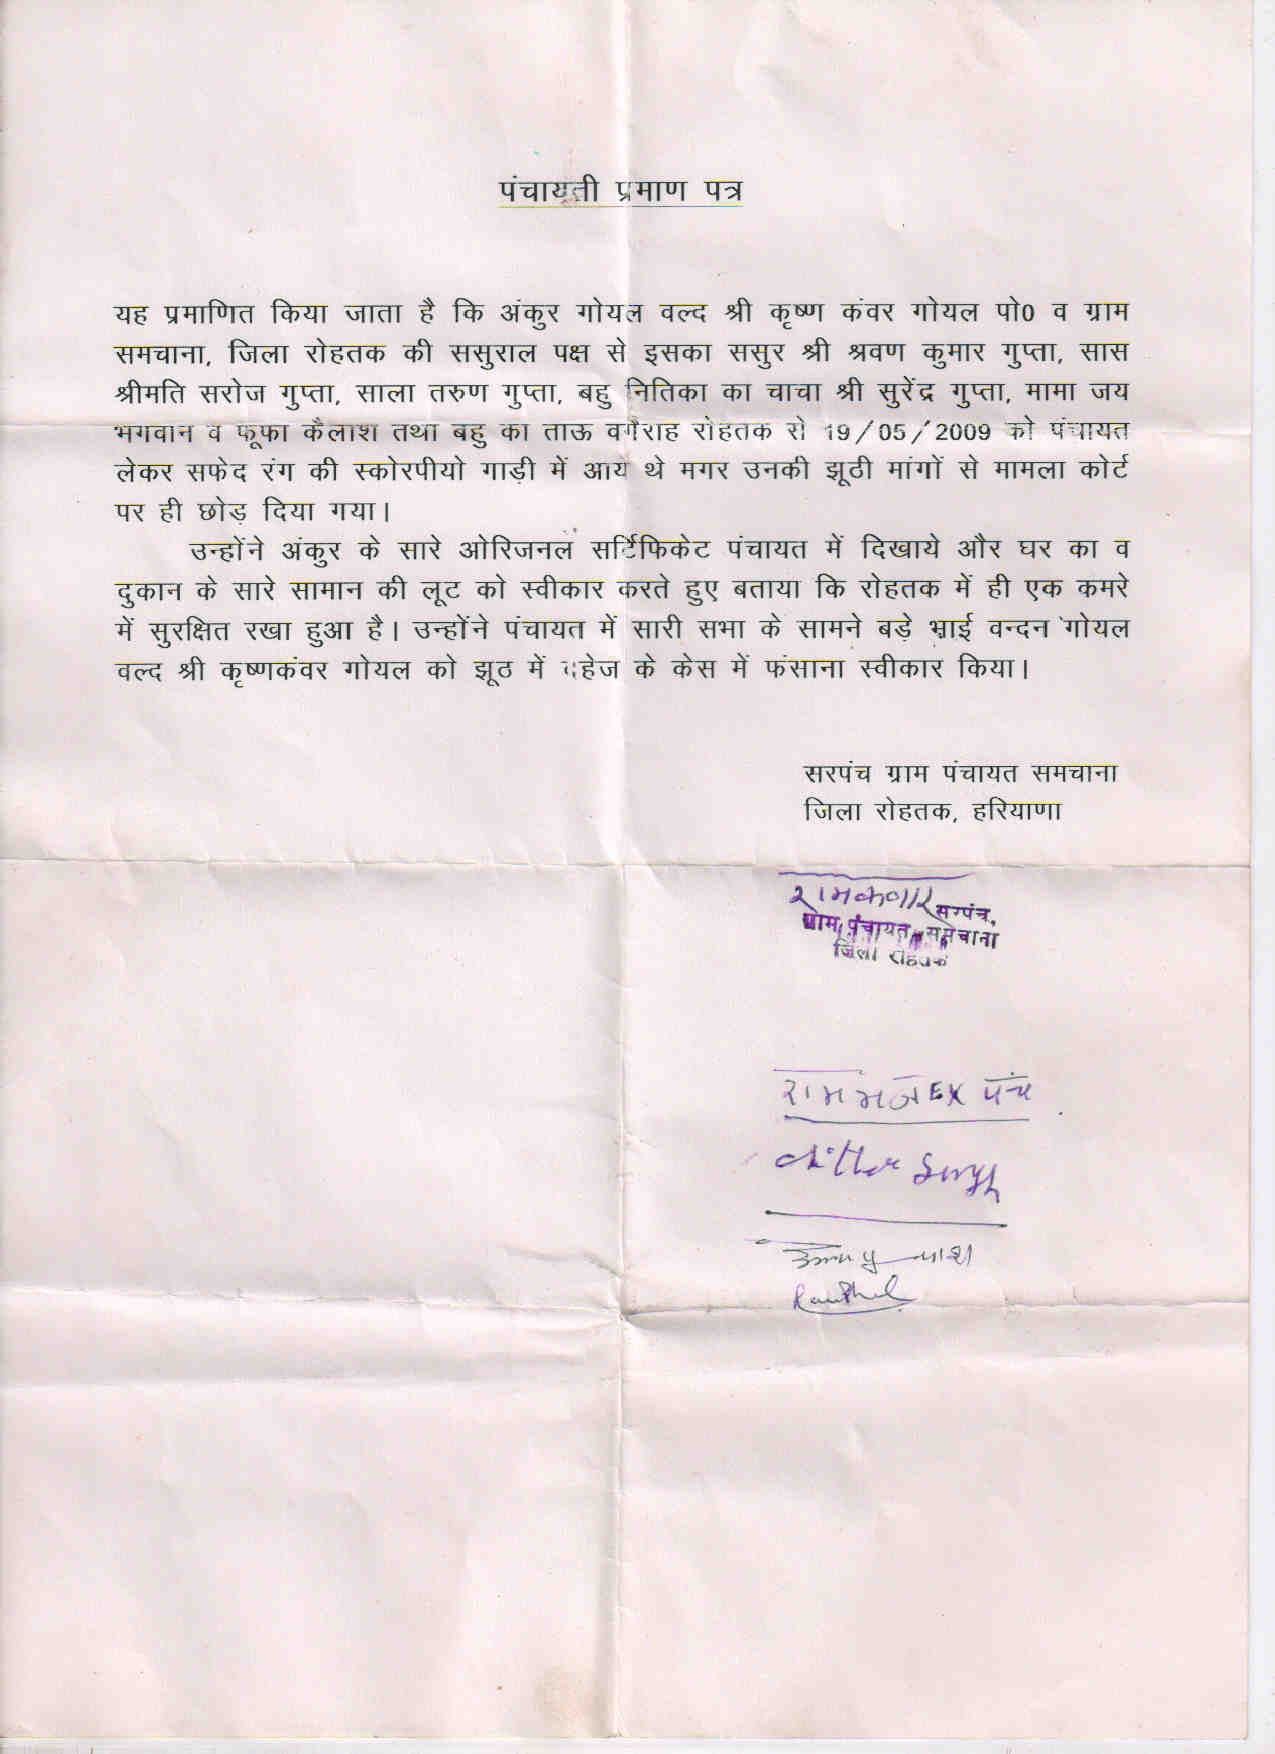 पंचायती प्रमाण पत्र
यह प्रमाणित किया जाता है कि अंकुर गोयल वल्द श्री कृष्ण कंवर गोयल पो0 व ग्राम
समचाना, जिला रोहतक की ससुराल पक्ष से इसका ससुर श्री श्रवण कुमार गुप्ता, सास
श्रीमति सरोज गुप्ता, साला तरुण गुप्ता, बहु नितिका का चाचा श्री सुरेंद्र गुप्ता, मामा जय
भगवान व फूफा कैलाश तथा बहु का ताऊ वगैराह रोहतक से 19/05/2009 को पंचायत
लेकर सफेद रंग की स्कोरपीयो गाड़ी में आये थे मगर उनकी झूठी मांगों से मामला कोर्ट
पर ही छोड़ दिया गया।
उन्होंने अंकुर के सारे ओरिजनल सर्टिफिकेट पंचायत में दिखाये और घर का व
दुकान के सारे सामान की लूट को स्वीकार करते हुए बताया कि रोहतक में ही एक कमरे
में सुरक्षित रखा हुआ है। उन्होंने पंचायत में सारी सभा के सामने बड़े भाई वन्दन गोयल
वल्द श्री कृष्णकंवर गोयल को झूठ में दहेज के केस में फंसाना स्वीकार किया।
सरपंच ग्राम पंचायत समचाना
जिला रोहतक, हरियाणा
रामकवार सरपंच,
ग्राम पंचायत, समचाना
जिला रोहतक
EX पंच
Singh